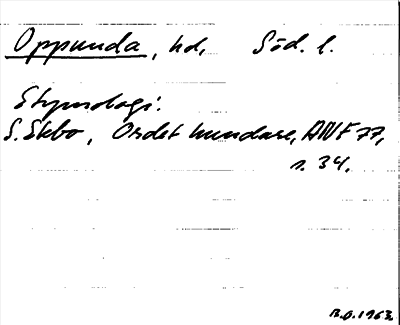 Oppunda, hd, Söd. l.
Etymologi.
S. Ekbo, Ordet hundare, ANF 77,
s. 34.
B.O. 1963